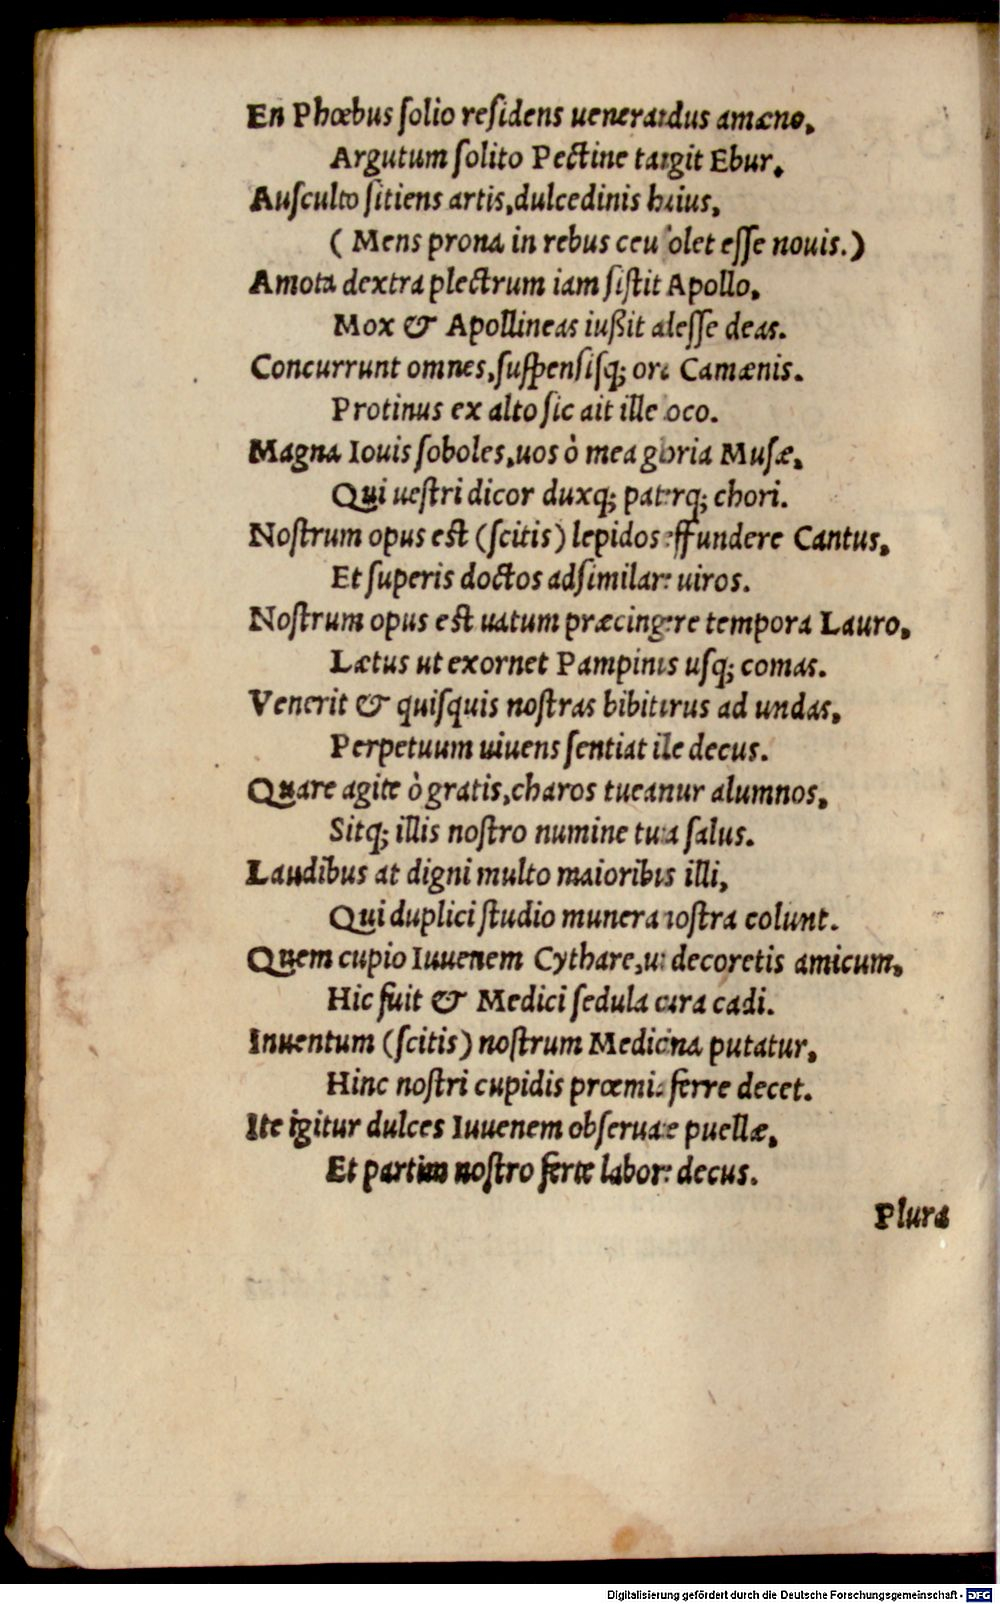 En Phœbus ſolio reſidens uenerandus amæno,
Argutum ſolito Pectine tangit Ebur.
Auſculto ſitiens artis, dulcedinis huius,
( Mens prona in rebus ceu ſolet eſſe nouis.)
Amota dextra plectrum iam ſiſtit Apollo,
Mox & Apollineas iußit adeſſe deas.
Concurrunt omnes, ſuſpenſisq; ore Camænis.
Protinus ex alto ſic ait ille loco.
Magna Iouis ſoboles, uos ò mea gloria Muſæ,
Qui ueſtri dicor duxq; paterq; chori.
Noſtrum opus eſt (ſcitis) lepidos effundere Cantus,
Et ſuperis doctos adſimilare uiros.
Noſtrum opus eſt uatum præcingere tempora Lauro,
Lætus ut exornet Pampinus uſq; comas.
Venerit & quiſquis noſtras bibiturus ad undas,
Perpetuum uiuens ſentiat ille decus.
Quare agite ò gratis, charos tueamur alumnos,
Sitq; illis noſtro numine tuta ſalus.
Laudibus at digni multo maioribus illi,
Qui duplici ſtudio munera noſtra colunt.
Quem cupio Iuuenem Cythare, ut decoretis amicum,
Hic fuit & Medici ſedula cura cadi.
Inuentum (ſcitis) noſtrum Medicina putatur,
Hinc noſtri cupidis præmia ferre decet.
Ite igitur dulces Iuuenem obſeruate puellæ,
Et partim noſtro ferte labore decus.
Plura
Digitalisierung gefördert durch die Deutsche Forschungsgemeinschaft - DFG